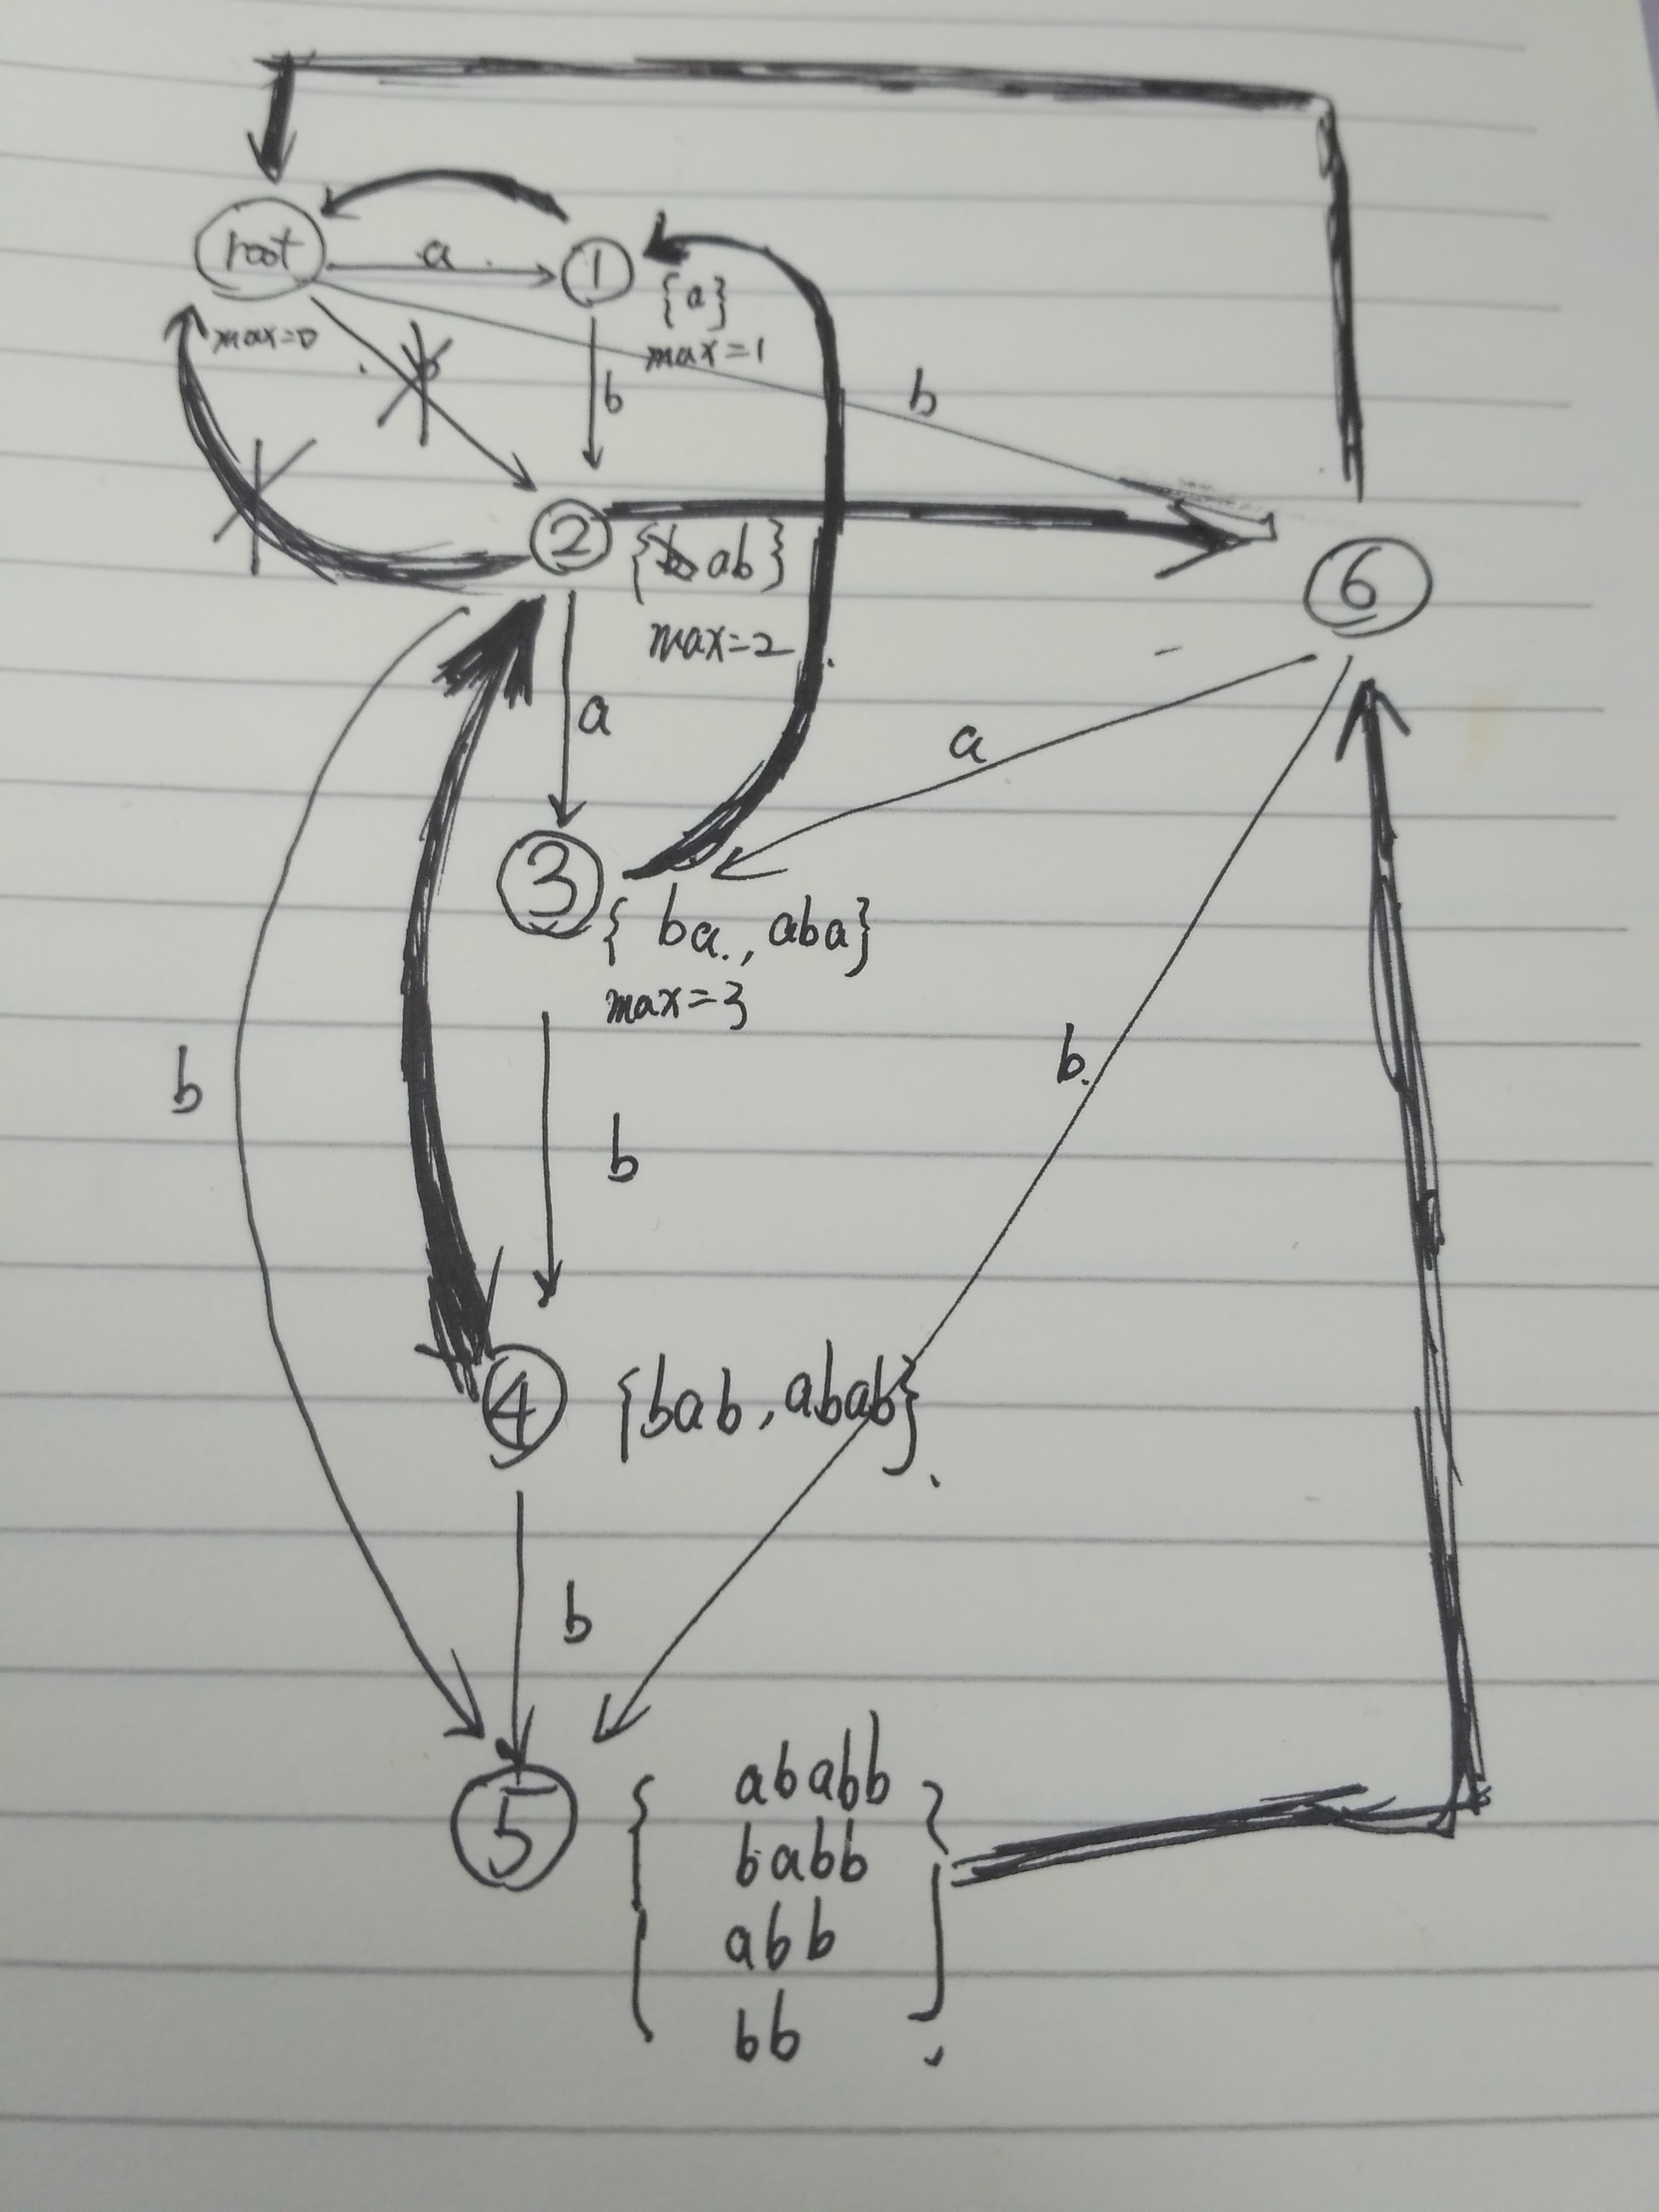 root
a
1
{a}
max=0
max=1
b
b
b
2
{b ab}
max=2
6
a
a
3
{ba, aba}
max=3
b
b
b
4
{bab, abab}
b
5
{ababb
babb
abb
bb}